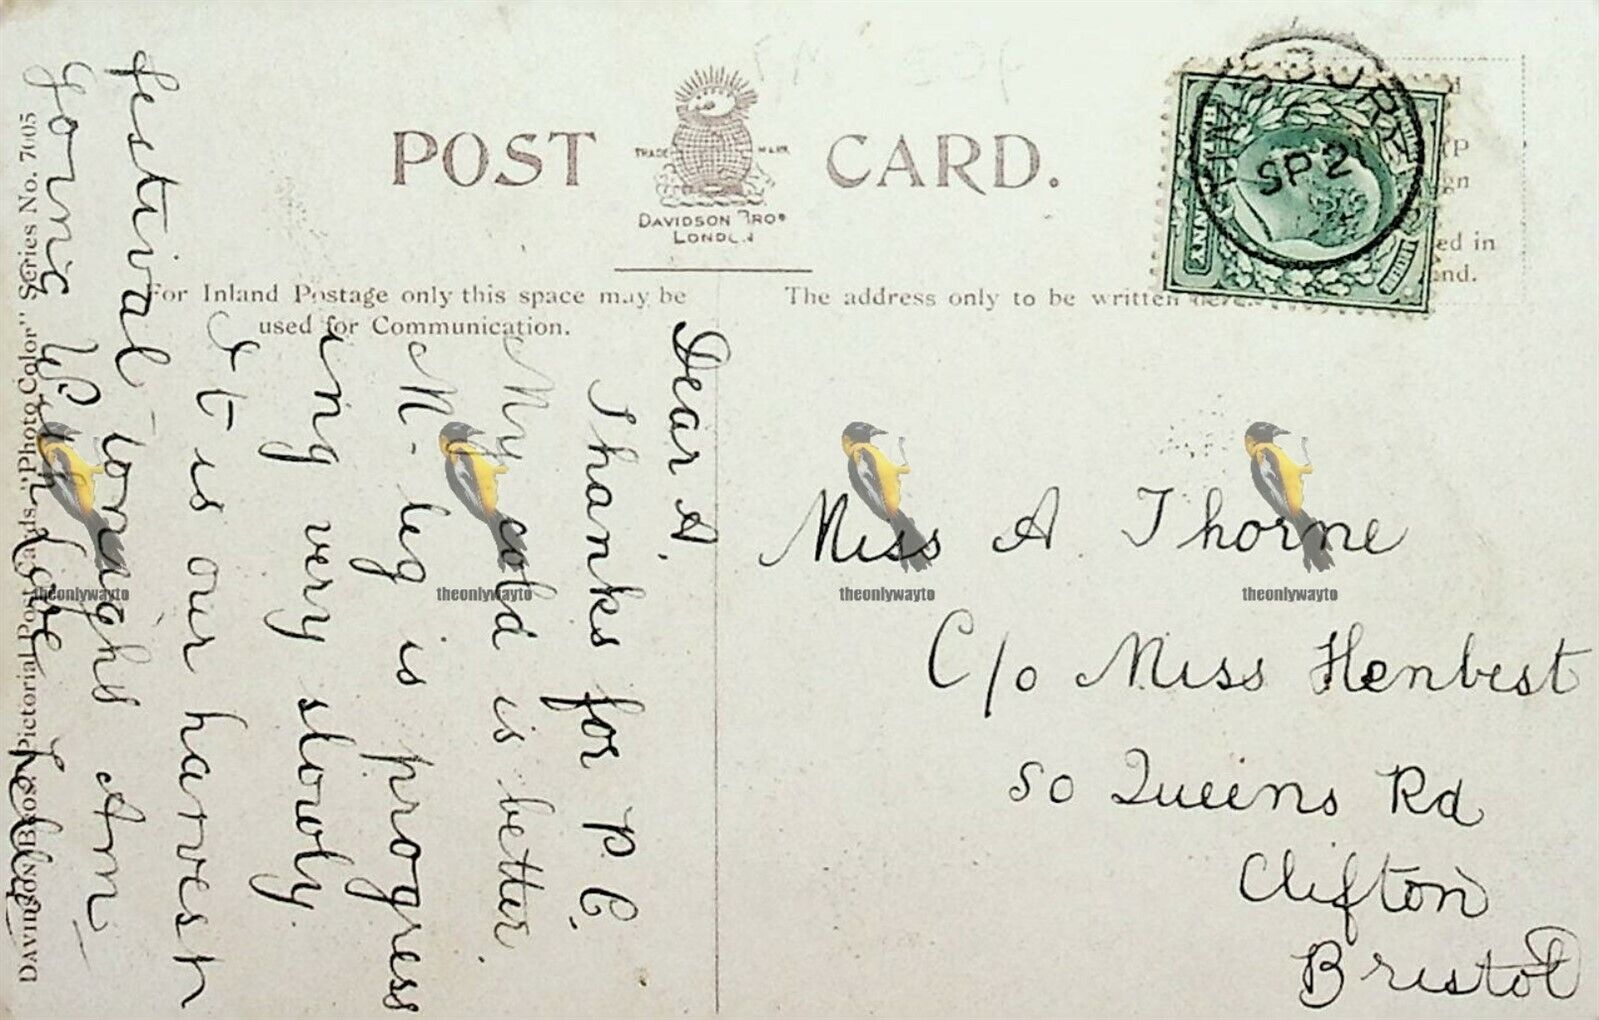 POST CARD.
TRADE MARK
DAVIDSON BROS
LONDON
For Inland Postage only this space may be
used for Communication.
The address only to be written here.
TIMSBURY
SP 2
HALF PENNY
Dear A.
Thanks for P.C.
My cold is better.
M- leg is progress
ing very slowly.
It is our harvest
festival tonight Am
going With love
DAVIDSON BROS. Pictorial Post Cards, "Photo Color" Series No. 7005
Miss A Thorne
C/o Miss Henbest
50 Queens Rd
Clifton
Bristol
theonlywayto
theonlywayto
theonlywayto
theonlywayto